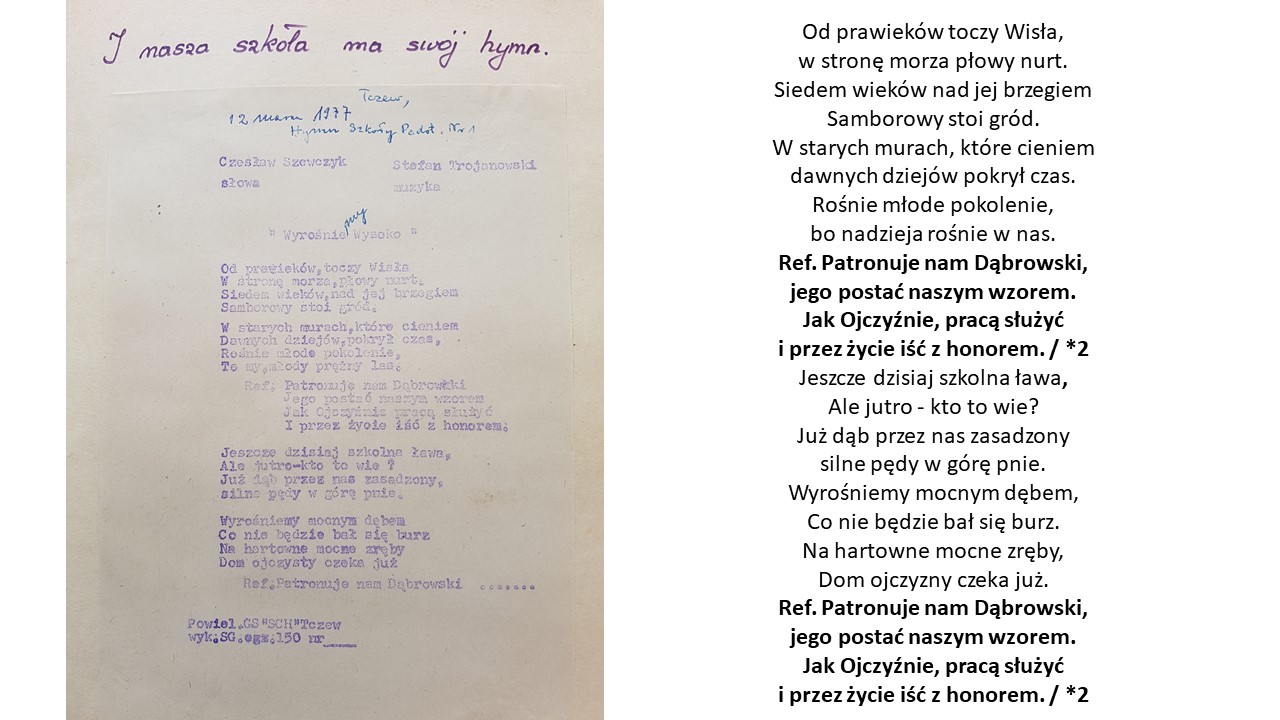 I nasza szkoła ma swój hymn.
Tczew,
12 marca 1977
Hymn Szkoły Podst. Nr 1
Czesław Szewczyk Stefan Trojanowski
słowa muzyka
" Wyrośniemy Wysoko "
Od prawieków,toczy Wisła
W stronę morza,płowy nurt.
Siedem wieków,nad jej brzegiem
Samborowy stoi gród.
W starych murach,które cieniem
Dawnych dziejów,pokrył czas,
Rośnie młode pokolenie,
To my,młody prężny las.
Ref: Patronuje nam Dąbrowski
Jego postać naszym wzorem
Jak Ojczyźnie pracą służyć
I przez życie iść z honorem.
Jeszcze dzisiaj szkolna ława,
Ale jutro-kto to wie ?
Już dąb przez nas zasadzony,
silne pędy w górę pnie.
Wyrośniemy mocnym dębem
Co nie będzie bał się burz
Na hartowne mocne zręby
Dom ojczysty czeka już
Ref.Patronuje nam Dąbrowski .......
Powiel.GS"SCH"Tczew
wyk.SG.egz.150 nr____
Od prawieków toczy Wisła,
w stronę morza płowy nurt.
Siedem wieków nad jej brzegiem
Samborowy stoi gród.
W starych murach, które cieniem
dawnych dziejów pokrył czas.
Rośnie młode pokolenie,
bo nadzieja rośnie w nas.
Ref. Patronuje nam Dąbrowski,
jego postać naszym wzorem.
Jak Ojczyźnie, pracą służyć
i przez życie iść z honorem. / *2
Jeszcze dzisiaj szkolna ława,
Ale jutro - kto to wie?
Już dąb przez nas zasadzony
silne pędy w górę pnie.
Wyrośniemy mocnym dębem,
Co nie będzie bał się burz.
Na hartowne mocne zręby,
Dom ojczyzny czeka już.
Ref. Patronuje nam Dąbrowski,
jego postać naszym wzorem.
Jak Ojczyźnie, pracą służyć
i przez życie iść z honorem. / *2